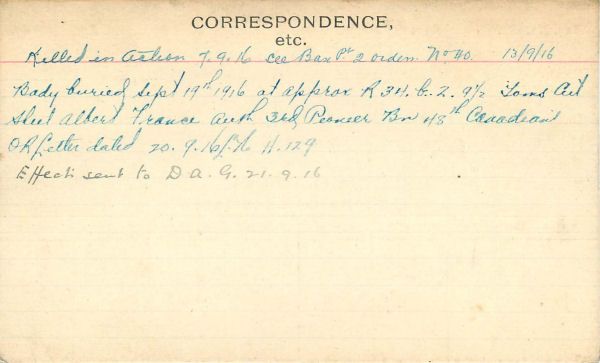 CORRESPONDENCE,
etc.
Killed in Action 7.9.16 see Ban Pt 2 orders No 40. 13/9/16
Body buried Sept 19th 1916 at approx R 34. b. 2. 9½ Toms Cut
Sheet Albert France Auth 3rd Pioneer Bn 48th Canadians
OR Letter dated 20.9.16 H.129
Effects sent to D A. G. 21.9.16